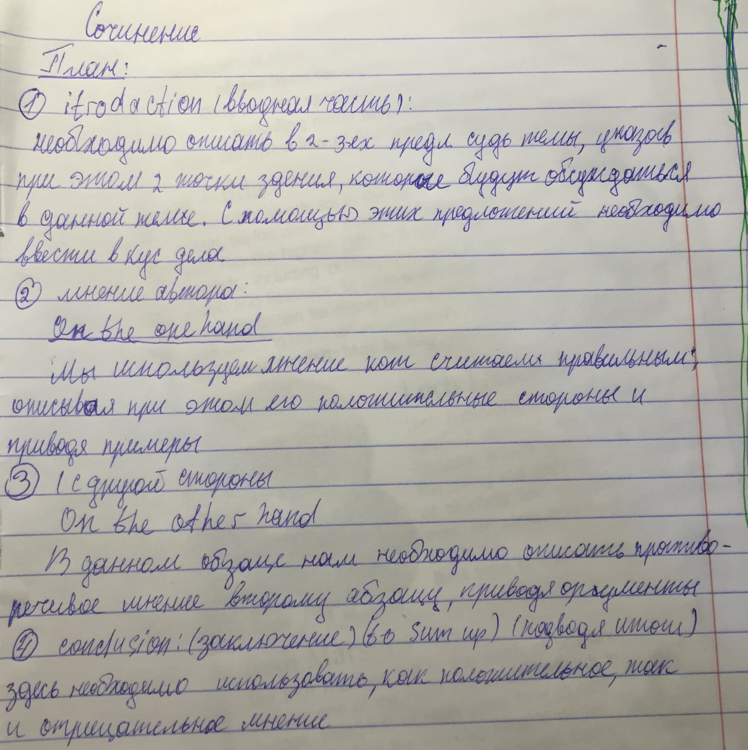 Сочинение
План:
① itrodaction (вводная часть):
необходимо описать в 2-3ех предл. судь темы, указав
при этом 2 точки здения, которые будут обсуждаться
в данной теме. С помощью этих предложений необходимо
ввести в кус дела.
② мнение автора:
On the one hand
Мы используем мнение кот считаем правильным,
описывая при этом его положительные стороны и
приводя примеры
③ (с другой стороны
On the other hand
В данном обзаце нам необходимо описать противо-
речивое мнение второму абзацу, приводя аргументы
④ conclusion: (заключение) (to sum up) (подводя итоги)
здесь необходимо использовать, как положительное, так
и отрицательное мнение